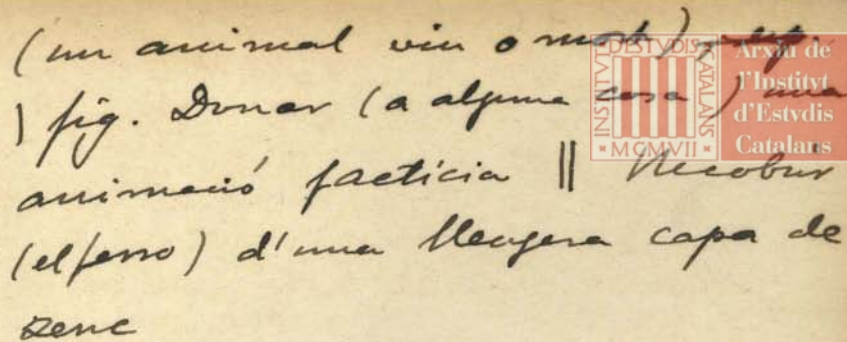 (un animal viu o mort), esp.
| fig. Donar (a alguna cosa) una
animació factícia || Recobrir
(el ferro) d'una lleugera capa de
zenc
INSTITVT D'ESTVDIS CATALANS
MCMVII
Arxiu de
l'Institvt
d'Estvdis
Catalans